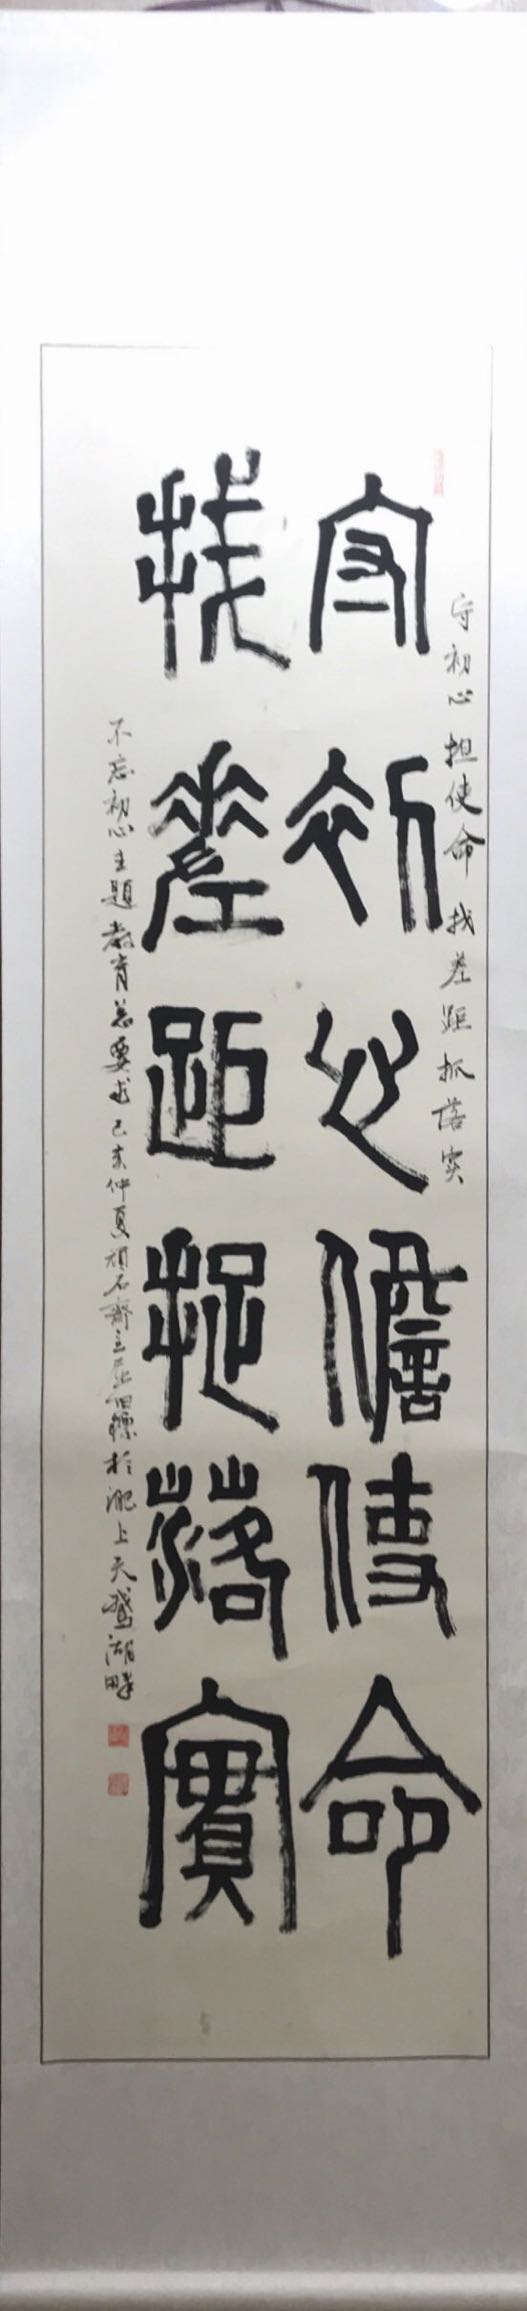 守初心担使命找差距抓落实
守初心儋使命
找差距捉落實
不忘初心主题教育总要求己亥仲夏顽石斋主
於淝上天鹅湖畔